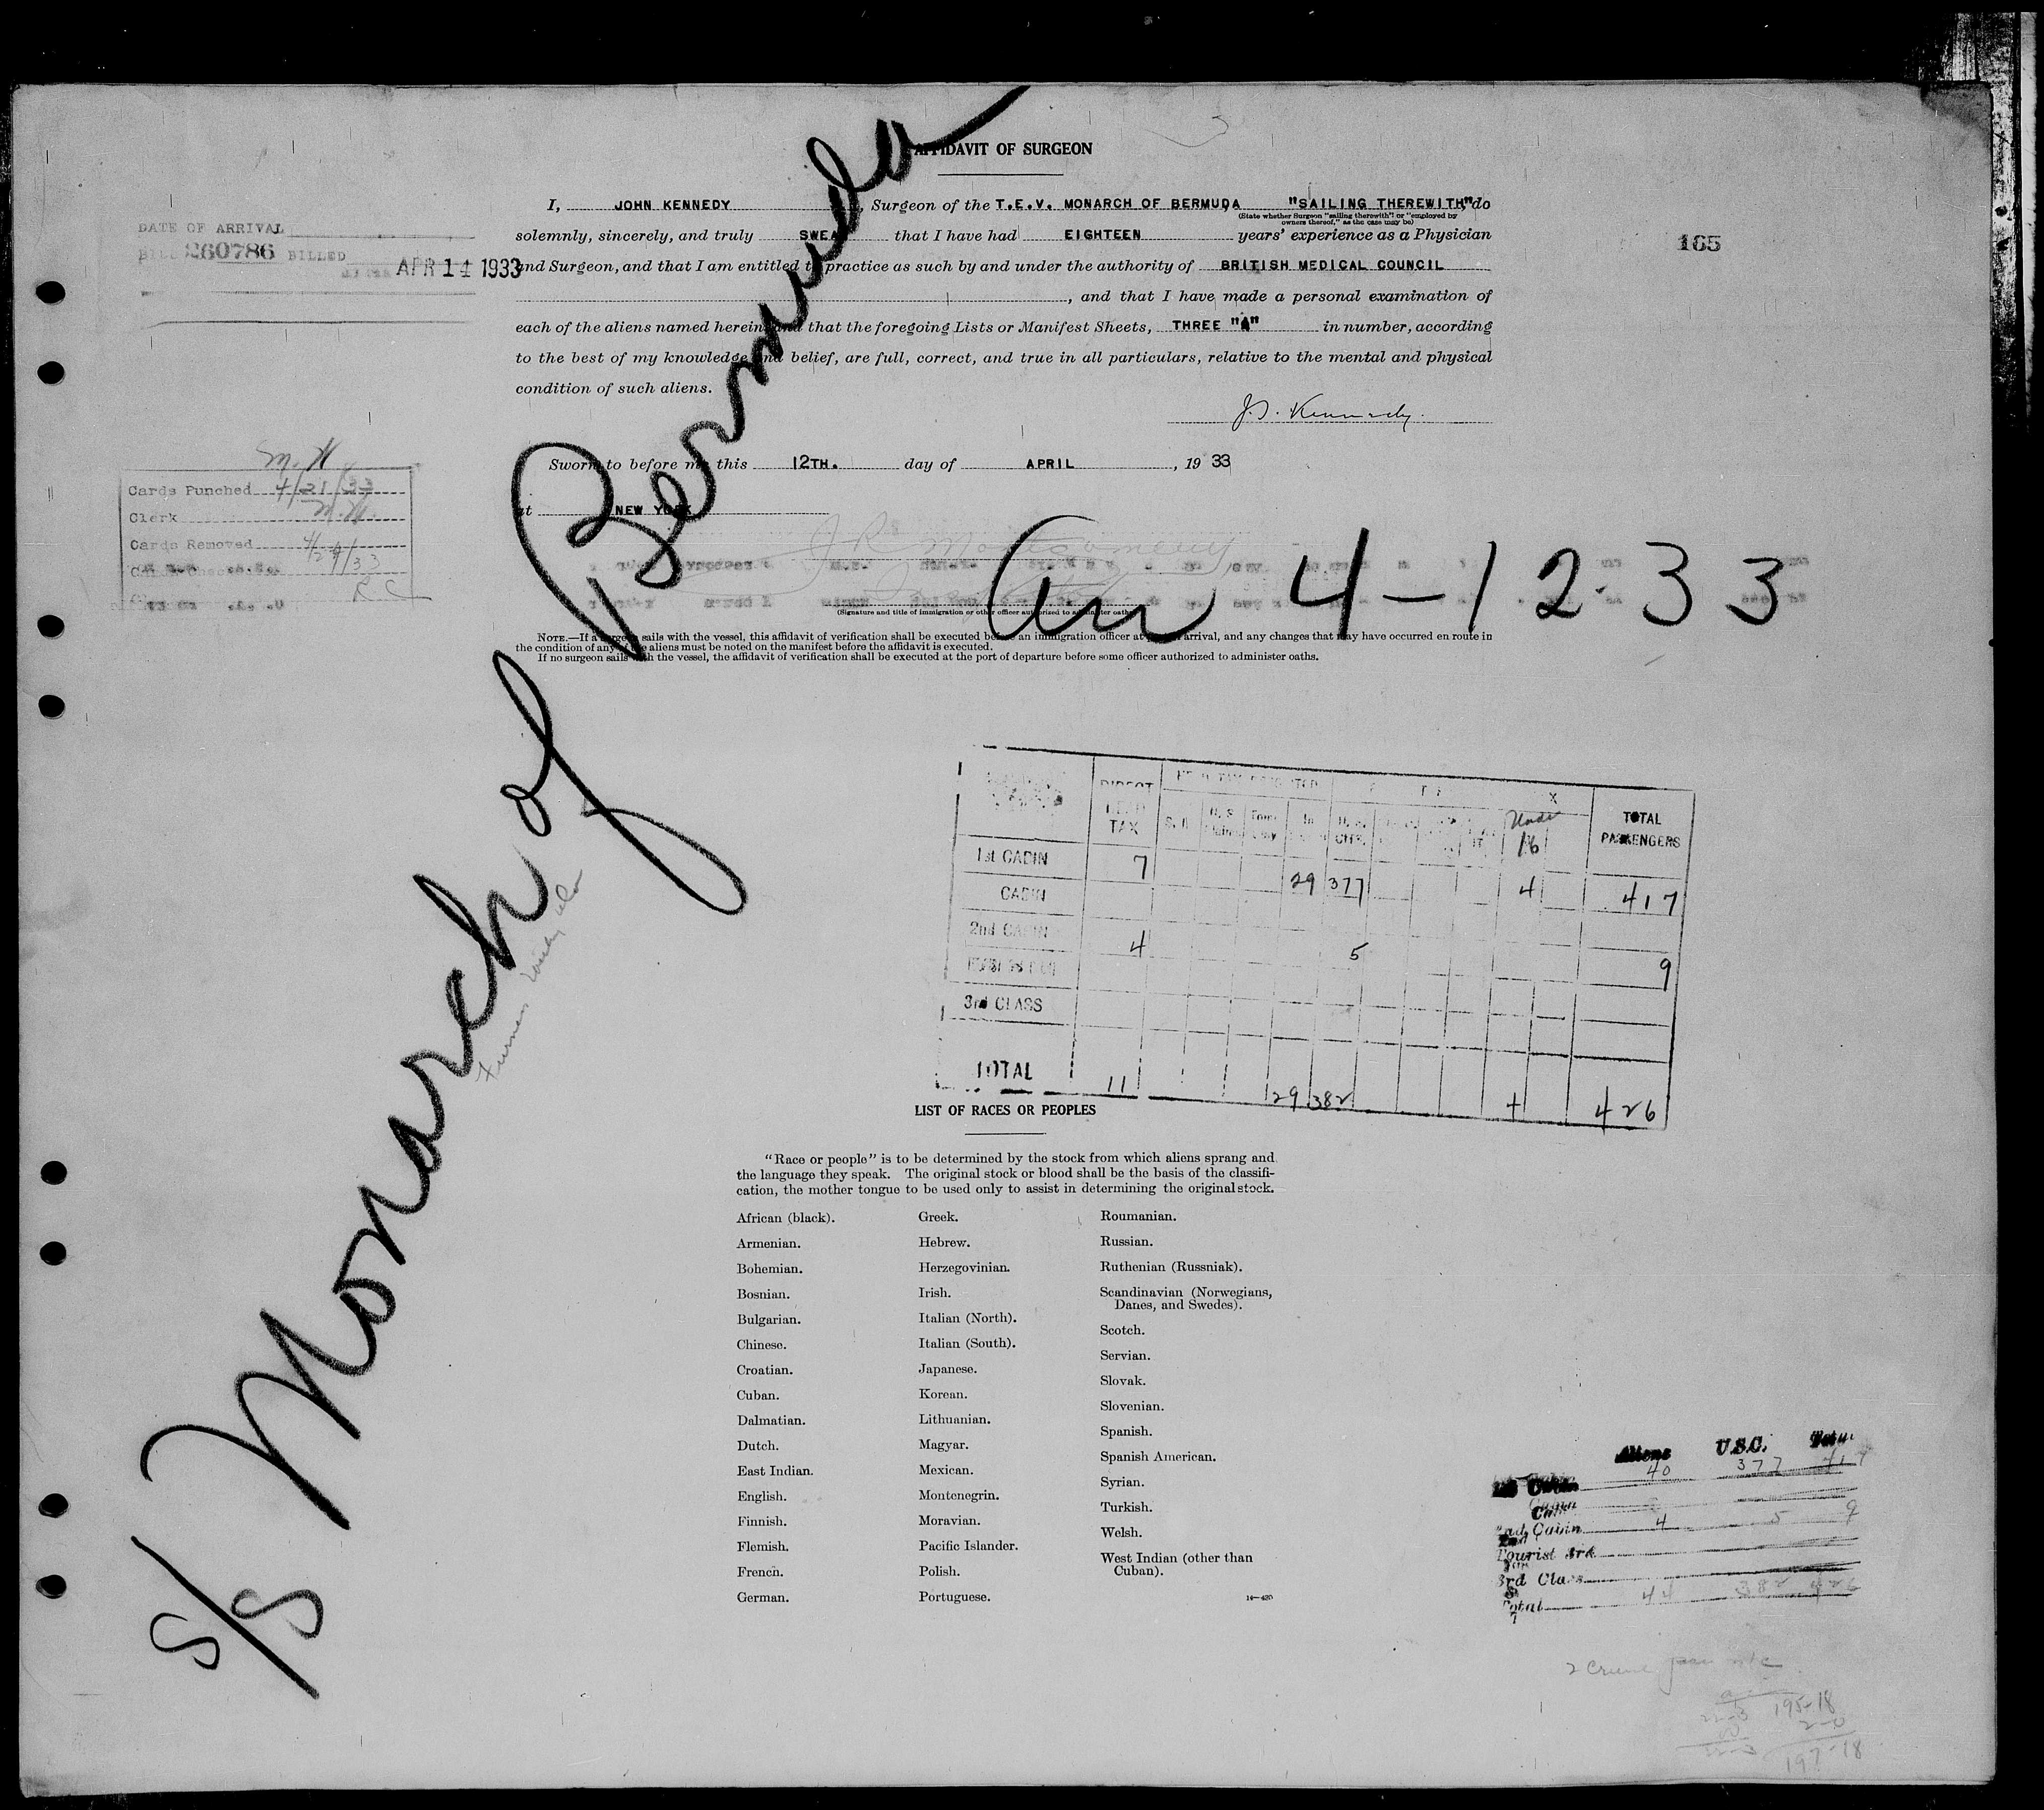 AFFIDAVIT OF SURGEON
I, JOHN KENNEDY, Surgeon of the T.E.V. MONARCH OF BERMUDA "SAILING THEREWITH" do
(State whether Surgeon "sailing therewith" or "employed by
owners thereof," as the case may be)
solemnly, sincerely, and truly SWEAR that I have had EIGHTEEN years' experience as a Physician
and Surgeon, and that I am entitled to practice as such by and under the authority of BRITISH MEDICAL COUNCIL
, and that I have made a personal examination of
each of the aliens named herein, and that the foregoing Lists or Manifest Sheets, THREE "A" in number, according
to the best of my knowledge and belief, are full, correct, and true in all particulars, relative to the mental and physical
condition of such aliens.
J. Kennedy.
Sworn to before me this 12TH. day of APRIL, 19 33
at NEW YORK
(Signature and title of immigration or other officer authorized to administer oaths)
NOTE.—If a surgeon sails with the vessel, this affidavit of verification shall be executed before an immigration officer at port of arrival, and any changes that may have occurred en route in
the condition of any of the aliens must be noted on the manifest before the affidavit is executed.
If no surgeon sails with the vessel, the affidavit of verification shall be executed at the port of departure before some officer authorized to administer oaths.
DATE OF ARRIVAL
BILL 260786 BILLED
APR 14 1933
165
M. H
Cards Punched 4/21/33
Clerk M.H.
Cards Removed 4/24/33
R C
S/S Monarch of Bermuda
Arr 4-12-33
DIRECT HEAD TAX
U.S. CITZ.
Under 16
TOTAL PASSENGERS
1st CABIN 7 29 377 4 417
CABIN
2nd CABIN 4 5 9
3rd CLASS
TOTAL 11 29 382 4 426
LIST OF RACES OR PEOPLES
"Race or people" is to be determined by the stock from which aliens sprang and
the language they speak. The original stock or blood shall be the basis of the classifi-
cation, the mother tongue to be used only to assist in determining the original stock.
African (black).
Armenian.
Bohemian.
Bosnian.
Bulgarian.
Chinese.
Croatian.
Cuban.
Dalmatian.
Dutch.
East Indian.
English.
Finnish.
Flemish.
French.
German.
Greek.
Hebrew.
Herzegovinian.
Irish.
Italian (North).
Italian (South).
Japanese.
Korean.
Lithuanian.
Magyar.
Mexican.
Montenegrin.
Moravian.
Pacific Islander.
Polish.
Portuguese.
Roumanian.
Russian.
Ruthenian (Russniak).
Scandinavian (Norwegians,
Danes, and Swedes).
Scotch.
Servian.
Slovak.
Slovenian.
Spanish.
Spanish American.
Syrian.
Turkish.
Welsh.
West Indian (other than
Cuban).
14—420
Aliens U.S.C. Total
1st Cabin 40 377 417
Cabin
2nd Cabin 4 5 9
Tourist 3rd
3rd Class
Total 44 382 426
195-18
2-0
197-18